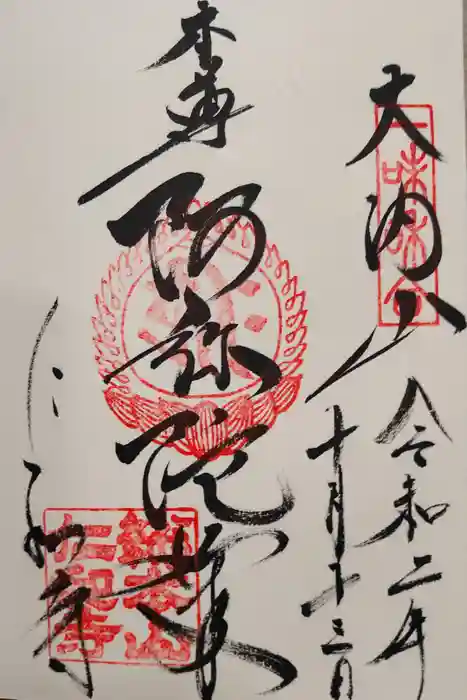 大内山
一味和合
令和二年
十月十三日
本尊
阿弥陀如来
仁和寺
總本山
仁和寺